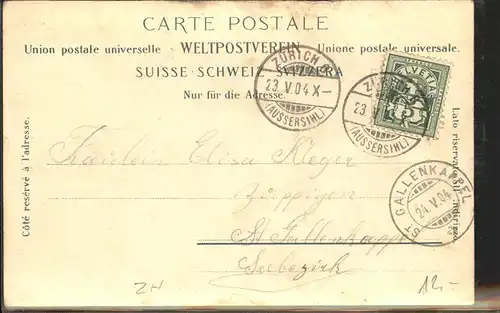 CARTE POSTALE
Union postale universelle - WELTPOSTVEREIN - Unione postale universale.
SUISSE·SCHWEIZ·SVIZZERA
Nur für die Adresse
Côté reservé à l'adresse.
Lato riservato all'indirizzo.
ZÜRICH
23.V.04 X-
(AUSSERSIHL)
ZÜRICH
23.V
(AUSSERSIHL)
HELVETIA
ST GALLENKAPPEL
24.V.04
Fräulein Elisa Kleger
St. Gallenkappel
Seebezirk
ZH
12.-